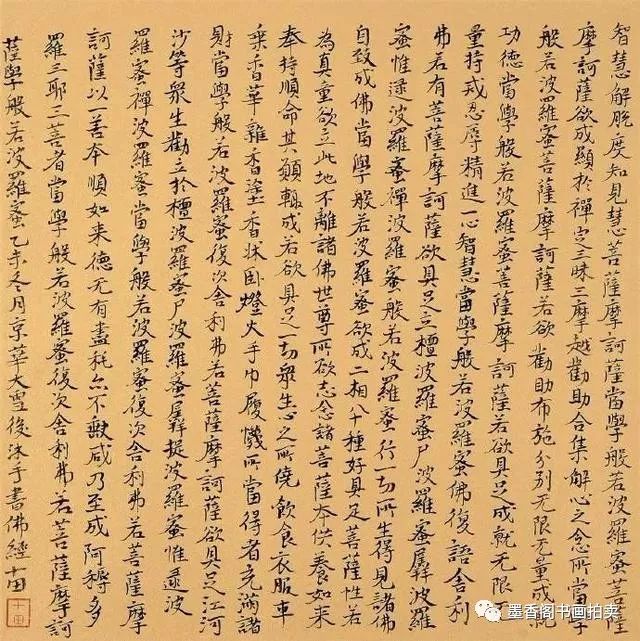 智慧解脱度知見慧菩薩摩訶薩當學般若波羅
摩訶薩欲成顯於禪定三昧三摩越勸助合集解心之念所當學
般若波羅蜜菩薩摩訶薩若欲勸助布施分別无限无量成
功德當學般若波羅蜜菩薩摩訶薩若欲具足成就无限
量持戒忍辱精進一心智慧當學般若波羅蜜佛復語舍利
弗若有菩薩摩訶薩欲具足立檀波羅蜜尸波羅蜜羼波羅
蜜惟逮波羅蜜禪波羅蜜般若波羅蜜行一切所生得見諸佛
自致成佛當學般若波羅蜜欲成二相八十種好具足菩薩性若
為真童欲立此地不離諸佛世尊所欲志念諸菩薩本供養如来
奉持順命其願輙成若欲具足一切衆生心之所僥飲食衣服車
乘香華雜香塗香牀卧燈火手巾履襪所當得者充滿諸
財當學般若波羅蜜復次舍利弗若菩薩摩訶薩欲具足江河
沙等衆生勸立於檀波羅蜜尸波羅蜜羼提波羅蜜惟逮波
羅蜜禪波羅蜜當學般若波羅蜜復次舍利弗若菩薩摩
訶薩以一善本順如来德无有盡耗亦不減乃至成阿耨多
羅三耶三菩者當學般若波羅蜜復次舍利弗若菩薩摩訶
薩學般若波羅蜜乙未冬月京華大雪後沐手書佛經十田
十田
墨香阁书画拍卖